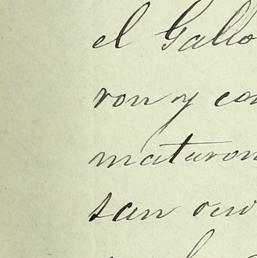 el Gallo
ron y con
mataron
san